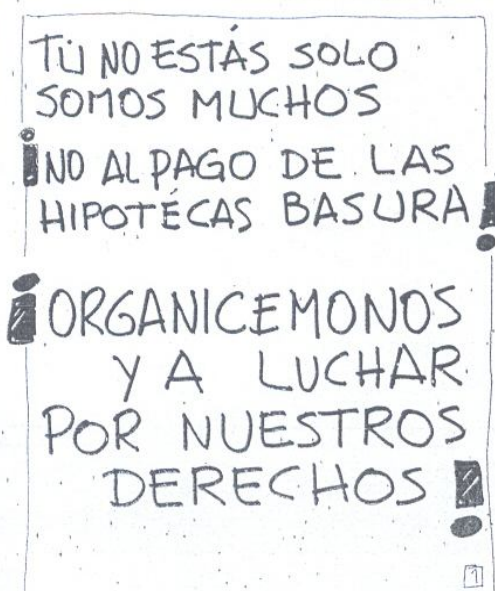 TÚ NO ESTÁS SOLO
SOMOS MUCHOS
¡NO AL PAGO DE LAS
HIPOTÉCAS BASURA!
¡ORGANICEMONOS
Y A LUCHAR
POR NUESTROS
DERECHOS!
1